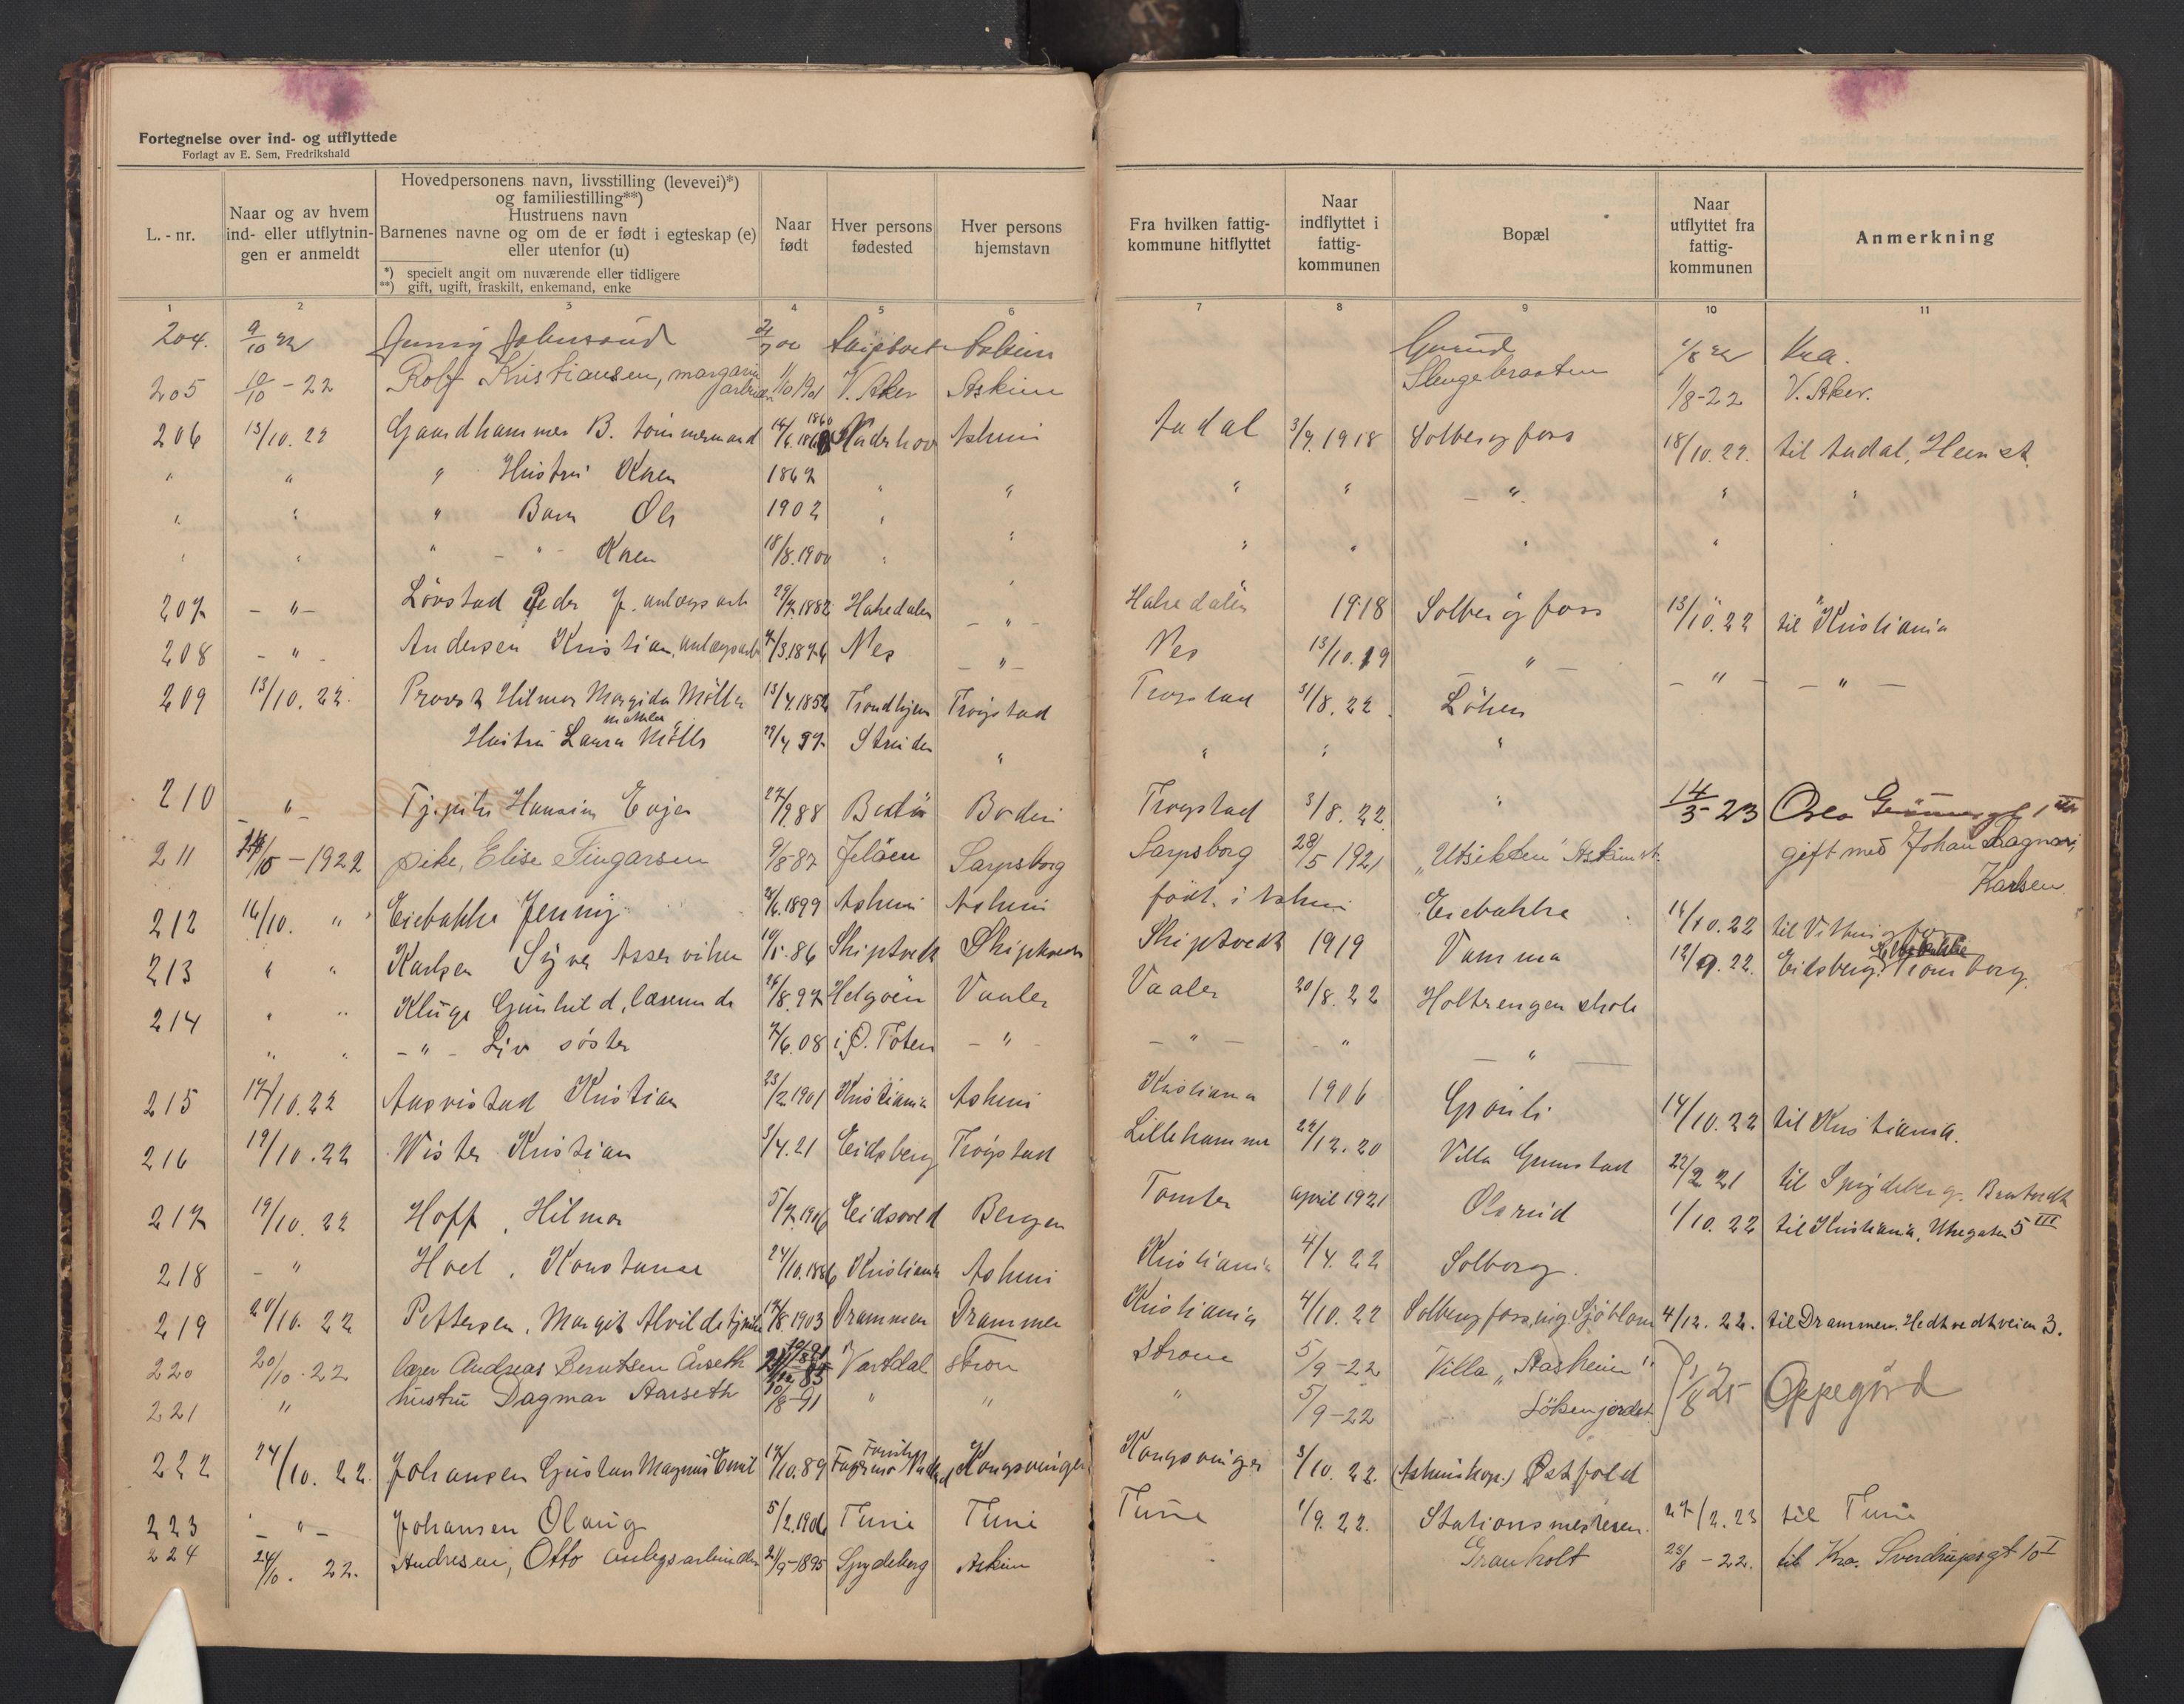 Fortegnelse over ind- og utflyttede
Forlagt av E. Sem, Fredrikshald
L. - nr.
Naar og av hvem ind- eller utflytnin- gen er anmeldt
Hovedpersonens navn, livsstilling (levevei)*)
og familiestilling**)
Hustruens navn
Barnenes navne og om de er født i egteskap (e)
eller utenfor (u)
*) specielt angit om nuværende eller tidligere
**) gift, ugift, fraskilt, enkemand, enke
Naar født
Hver persons fødested
Hver persons hjemstavn
Fra hvilken fattig- kommune hitflyttet
Naar indflyttet i fattig- kommunen
Bopæl
Naar utflyttet fra fattig- kommunen
Anmerkning
1 2 3 4 5 6 7 8 9 10 11
204. 9/10 22 Jenny Askim 1/8 22 Kra.
205 10/10 - 22 Rolf Kristiansen, margarin arbeider 1/10 1901 V. Aker Askim Slengebraaten 1/8-22 V. Aker.
206 13/10. 22 Gaardhammer B. tömmermand 1860 Askim Aadal 3/7. 1918 Solbergfoss 18/10. 22. til Aadal, Heen st.
" " " Hustru Karen 1867 " " " " - " " "
" " " Barn Ole 1902 "
" " " - " - Karen 18/8. 1900 "
207 - " - Lövstad Peder J. anlægsarb 29/7. 1882 Hakedalen - " - Hakedalen 1918 Solbergfoss 13/10. 22 til Kristiania
208 - " - Andersen Kristian, anlægsarb 7/3. 1876 Nes - " - Nes 13/10. 19 - " - - " - - " -
209 13/10. 22. Provst Hilmar Møller 13/7. 1852 Trondhjem Trøgstad Trøgstad 31/8. 22. Löken
Hustru Laura Møller 29/4 Strinden " " " "
210 - " - Tj.pike Hansine Evjen 27/9. 88 Bodin Bodin Trøgstad 3/8. 22. " 14/3-23 Oslo
211 /10 - 1922 pike, Elise Tingarsen 9/8-87 Jelöen Sarpsborg Sarpsborg 28/5 1921 "Utsikten" Askim st. gift med Johan Ragnar Karlsen
212 16/10. " Eiebakke Jenny 28/6. 1899 Askim Askim født i Askim Eiebakke 14/10. 22 til
213 " " Karlsen Syver 19/5. 86 Skiptvedt Skiptvedt Skiptvedt 1919 Vamma 12/9. 22. Eidsberg.
214 " " Kluge Gunhild, lærerinde 26/8. 97 Helgøen Vaaler Vaaler 20/8. 22 Holtrengen skole
" " - " - Liv søster 7/6. 08 i Ø. Toten - " - - " - - " - " -
215 17/10. 22 Kristian 23/2. 1901 Kristiania Askim Kristiania 1906 Grönli 14/10. 22 til Kristiania.
216 19/10. 22 Wister Kristian 3/4. 21 Eidsberg Trøgstad Lillehammer 22/12. 20 Villa Grimstad 22/2 21 til Spydeberg.
217 19/10. 22 Hoff, Hilmar 5/7. 1906 Eidsvold Bergen Tomter april 1921 Olsrud 1/10. 22 til Kristiania, 5 III
218 - " Hoel, Konstanse 24/10. 1886 Kristiania Askim Kristiania 4/4. 22 Solborg.
219 20/10. 22 Pettersen, Margit Alvilde tjpike 17/8. 1903 Drammen Drammen Kristiania 4/10. 22 Solbergfoss, ing Sjöblom 4/12. 22. til Drammen. Hedtvedtveien 3.
220 20/10. 22 lærer Andreas Berntsen Årseth Vartdal Strøm Strøm 5/9 -22 Villa "Aasheim" 1/8 25 Oppegård
221 " hustru Dagmar Aarseth 10/8 -91 " " " 5/9 -22 Löken jordet
222 24/10. 22. Johansen Gustav Magnus Emil 17/10. 89 Kongsvinger Kongsvinger 3/10. 22. Østfold
223 - " - Johansen Olaug 5/2. 1906 Tune Tune Tune 1/9. 22. Stationsmesteren. 27/2. 23 til Tune
224 24/10. 22. Andresen, Otto anlegsarbeider 2/9-1895 Spydeberg Askim Granholt 25/8 - 22. til Kra. Sverdrupsgt 10 I